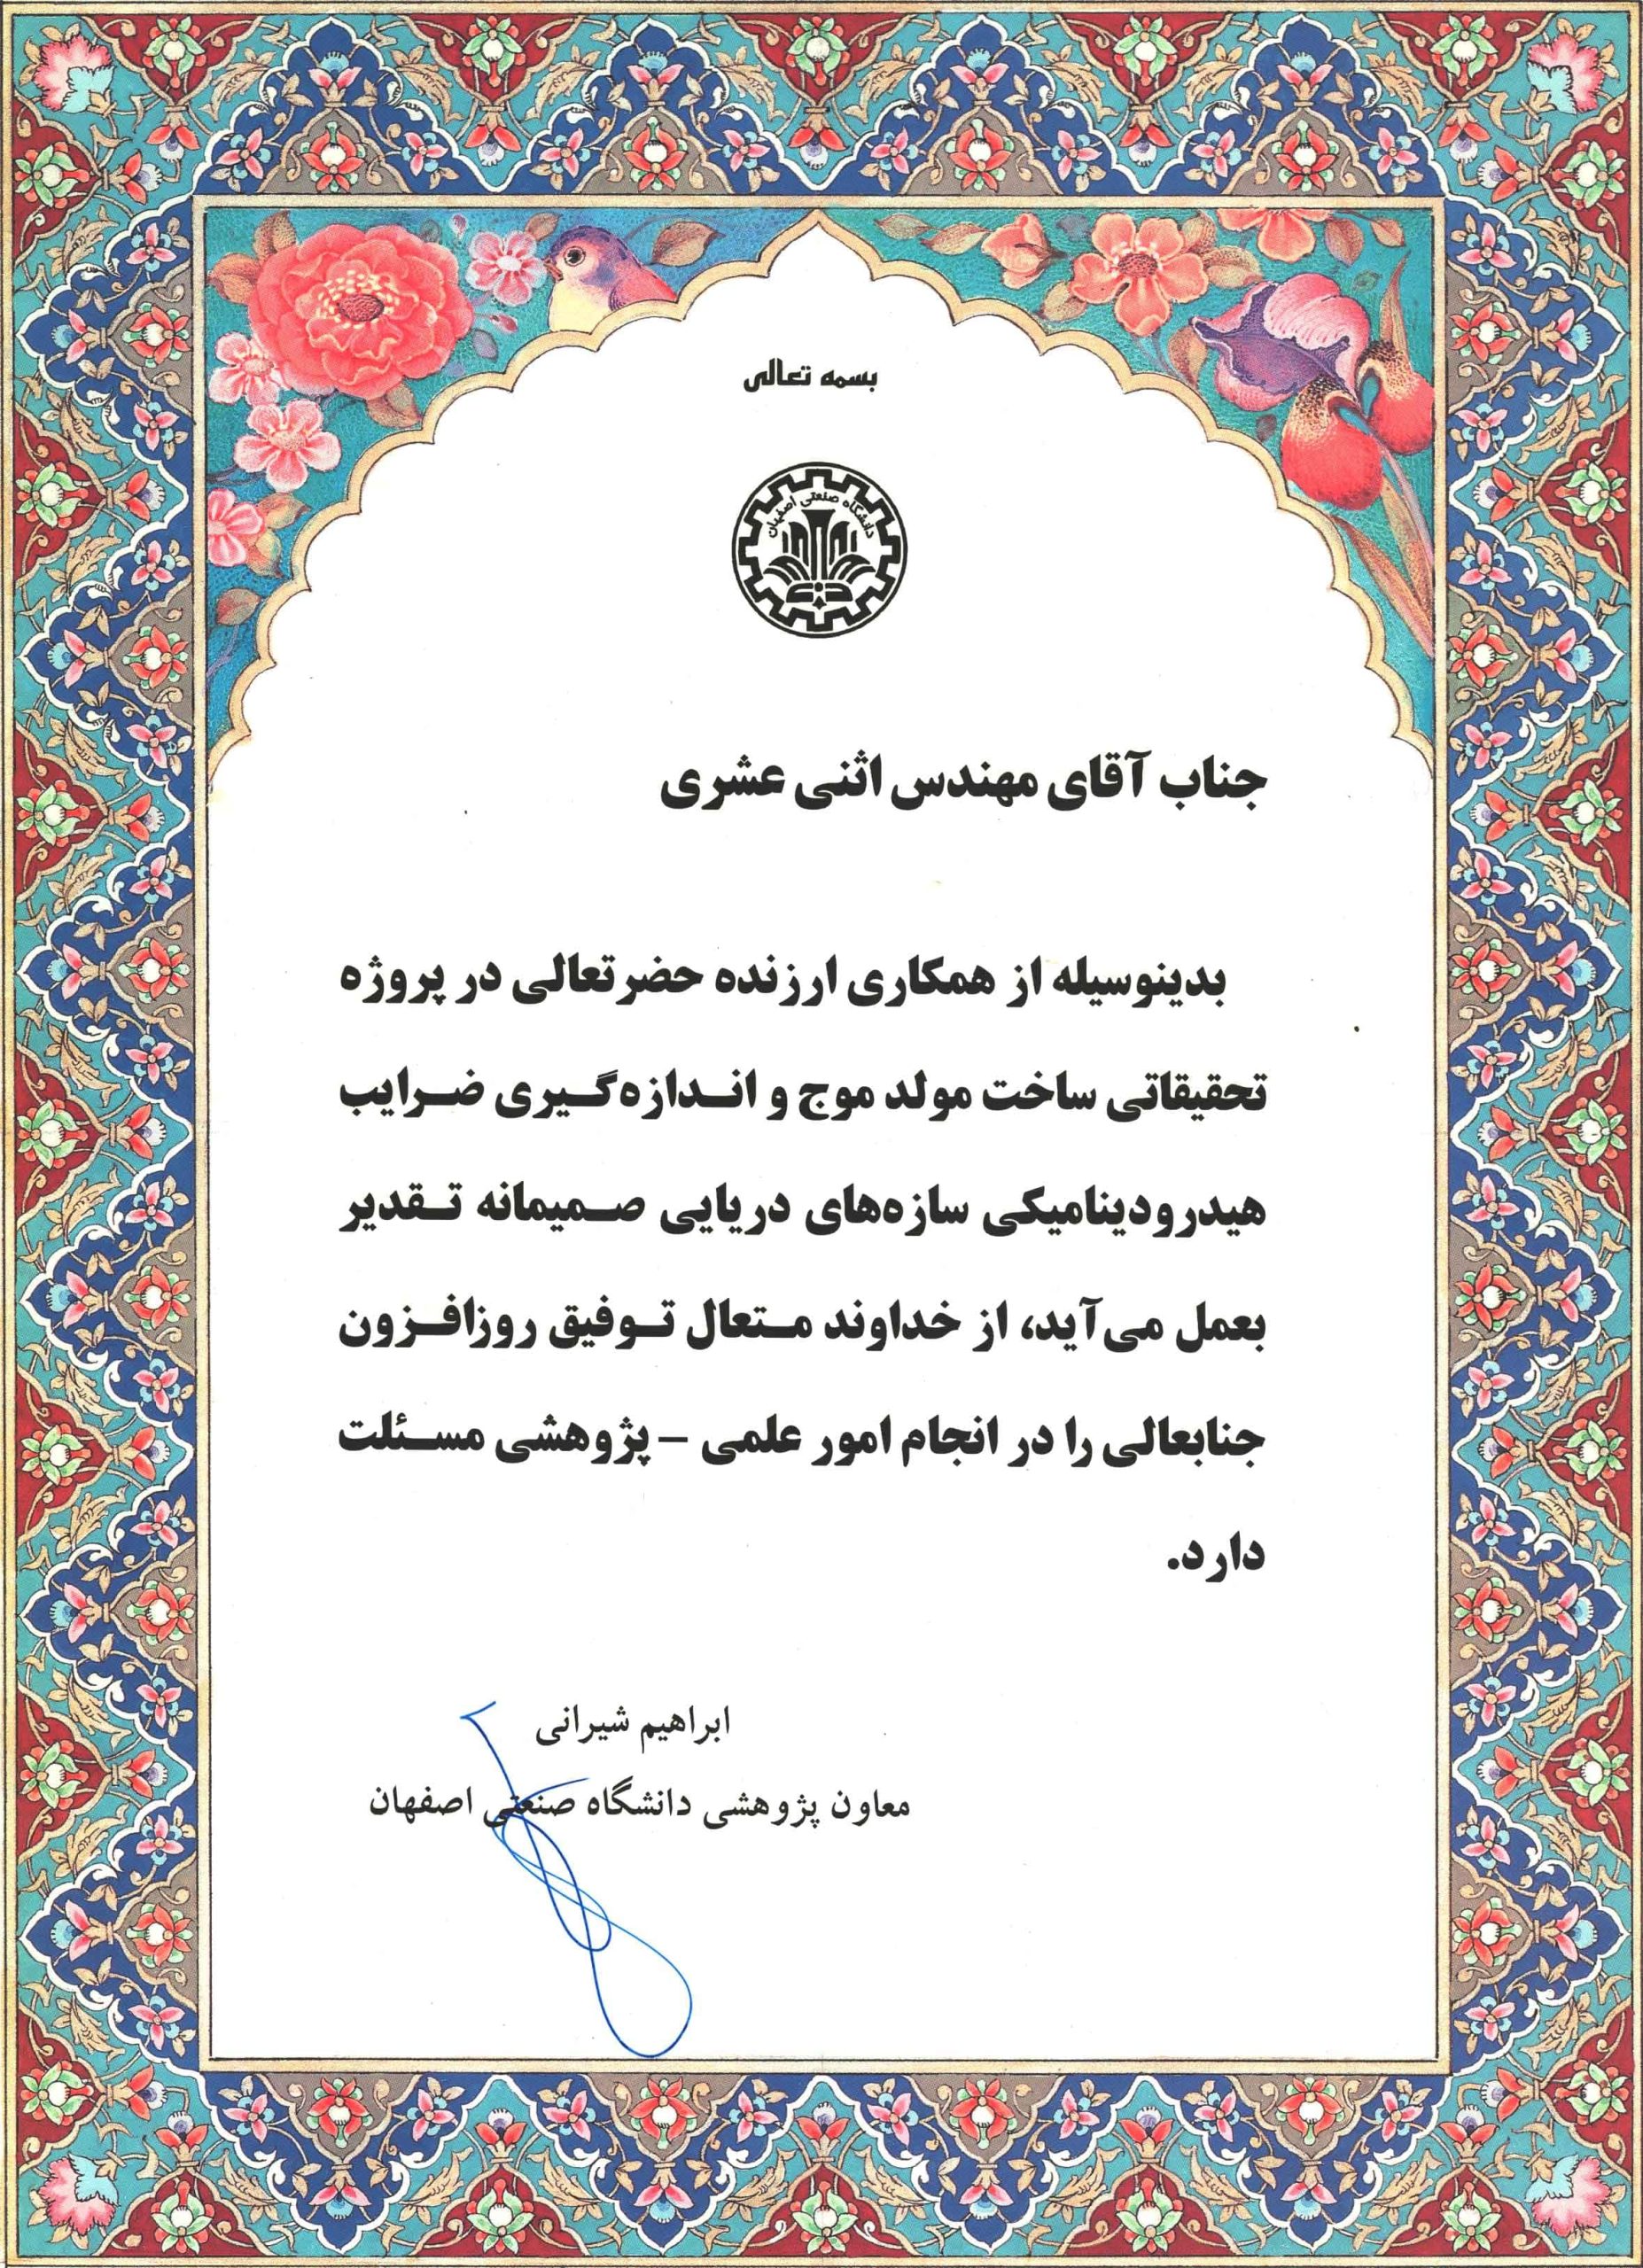 بسمه تعالی
دانشگاه صنعتی اصفهان
جناب آقای مهندس اثنی عشری
بدینوسیله از همکاری ارزنده حضرتعالی در پروژه
تحقیقاتی ساخت مولد موج و اندازه‌گیری ضرایب
هیدرودینامیکی سازه‌های دریایی صمیمانه تقدیر
بعمل می‌آید، از خداوند متعال توفیق روزافزون
جنابعالی را در انجام امور علمی – پژوهشی مسئلت
دارد.
ابراهیم شیرانی
معاون پژوهشی دانشگاه صنعتی اصفهان